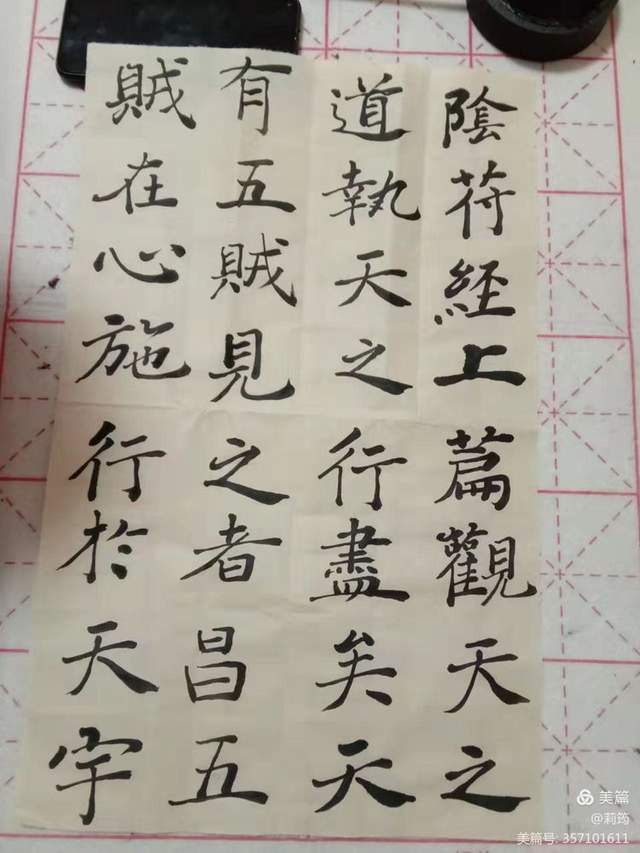 陰符經上篇觀天之
道執天之行盡矣天
有五賊見之者昌五
賊在心施行於天宇
美篇
@莉筠
美篇号 357101611